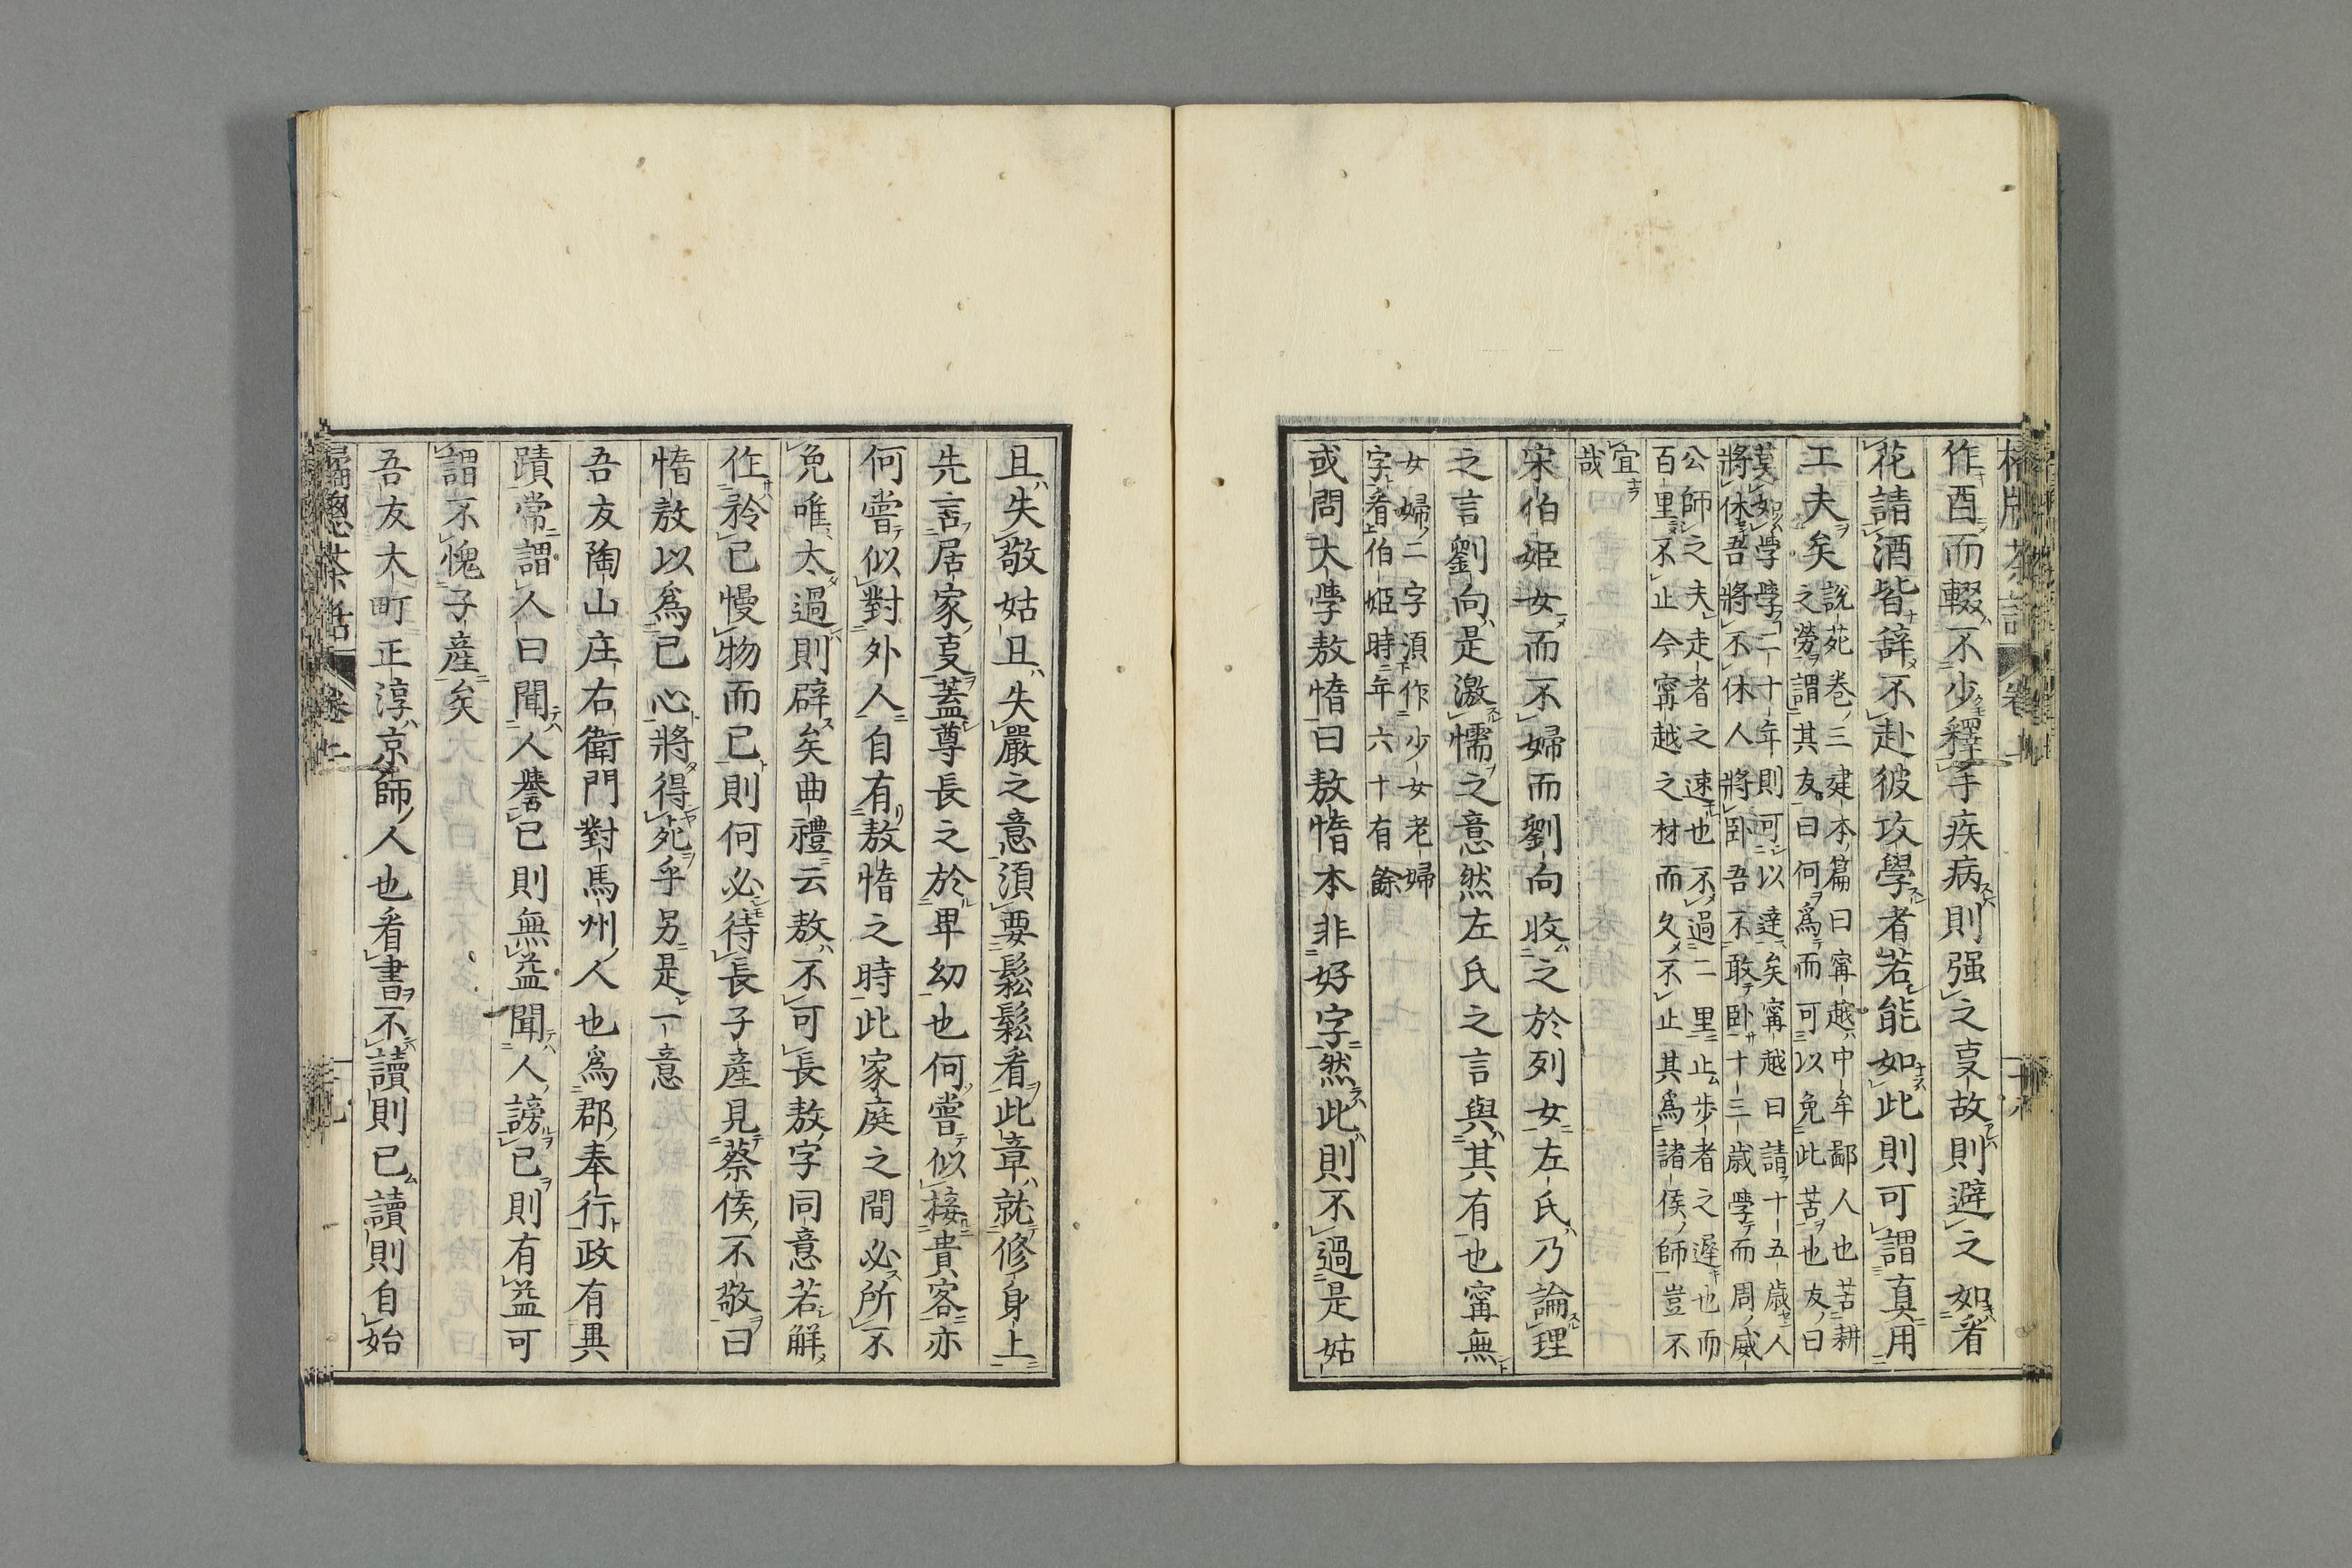 作酉而輟不少釋手疾病則强之叓故則避之如看
花請酒皆辞不赴彼攻學者若能如此則可謂真用
工夫矣
說苑卷三建本篇曰甯越中牟鄙人也苦耕
之勞謂其友曰何爲而可以免此苦也友曰
莫如學學二十年則可以達矣甯越曰請十五歲人
將休吾將不休人將卧吾不敢卧十三歲學而周威
公師之夫走者之速也不過二里止步者之遲也而
百里不止今甯越之材而久不止其爲諸侯師豈不
宜
哉
宋伯姬女而不婦而劉向收之於列女左氏乃論理
之言劉向是激懦之意然左氏之言與其有也甯無
女婦二字須作少女老婦
字看伯姬時年六十有餘
或問太學敖惰曰敖惰本非好字然此則不過是姑
且失敬姑且失嚴之意須要鬆鬆看此章就修身上
先言居家叓蓋尊長之於卑幼也何嘗似接貴客亦
何嘗似對外人自有敖惰之時此家庭之間必所不
免唯太過則辟矣曲禮云敖不可長敖字同意若解
作矜已慢物而已則何必待長子産見蔡侯不敬曰
惰敖以爲己心將得死乎另是一意
吾友陶山庄右衛門對馬州人也爲郡奉行政有異
蹟常謂人曰聞人譽已則無益聞人謗已則有益可
謂不愧子産矣
吾友大町正淳京師人也看書不讀則已讀則自始
窻茶話 卷上